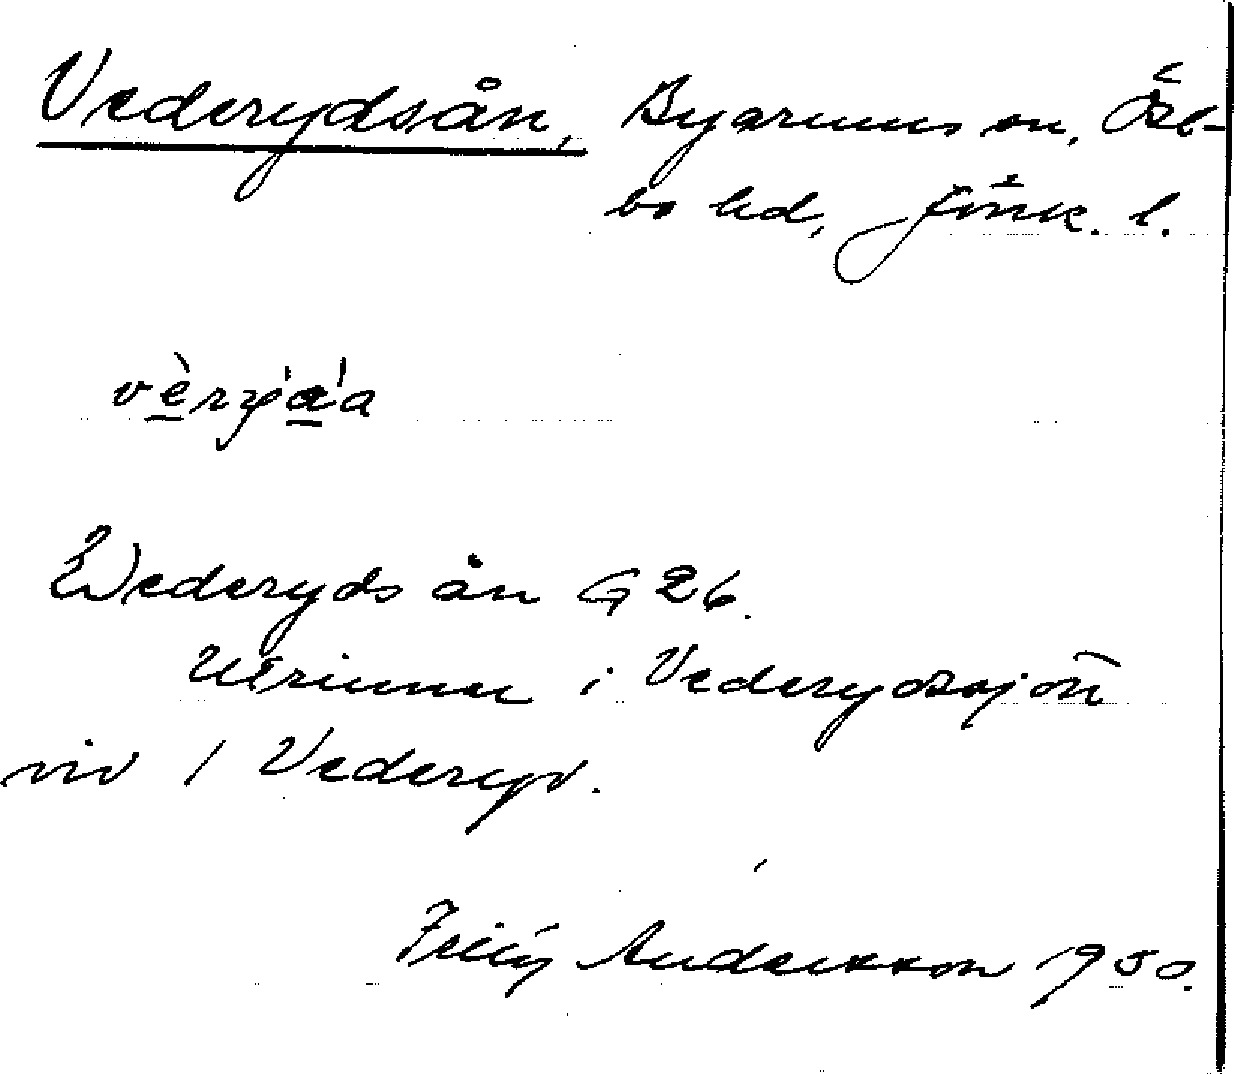 Vederydsån, Byarums sn, Öst-
bo hd, Jönk. l.
Wederyds ån G 26.
Utrinner i Vederydssjön
vid / Vederyd.
Andersson 1950.